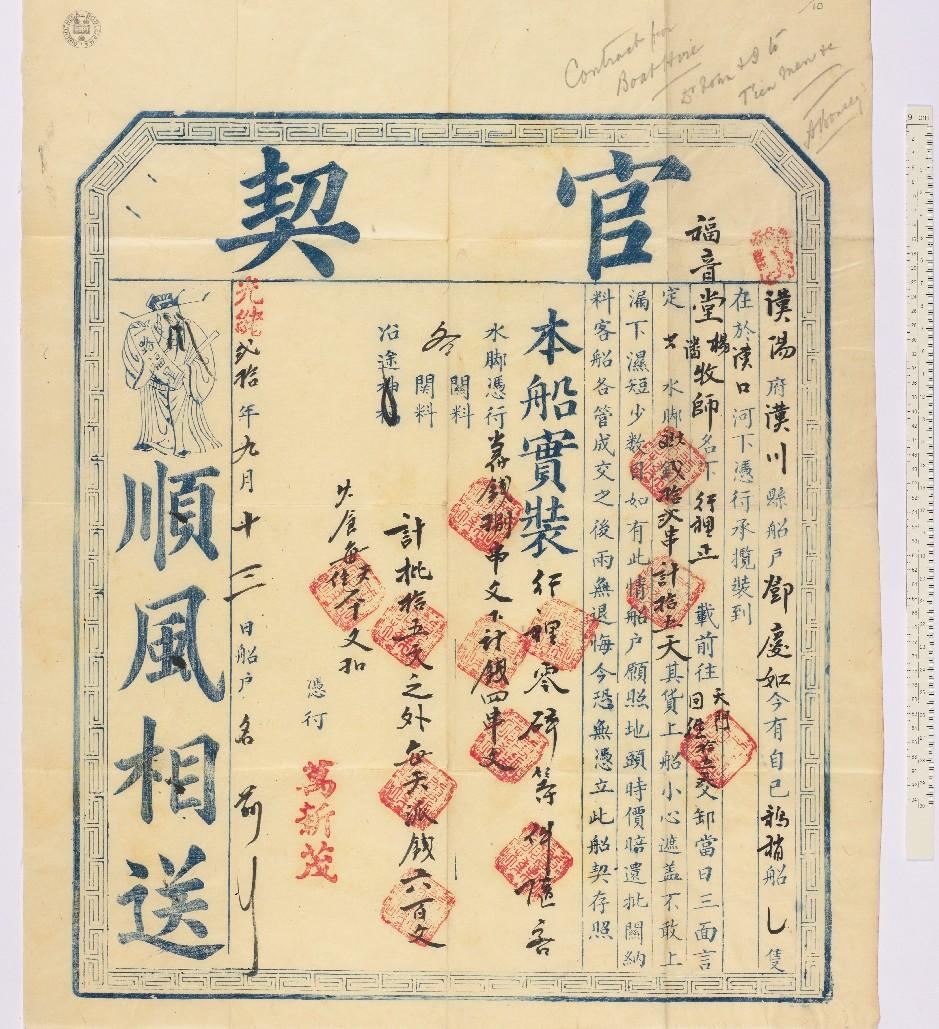 Contract for
Boat Hire
Dr John & I to
Tien Men &c
官契
漢陽府漢川縣船戶鄧慶如今有自己鴉稍船乚隻
在於漢口河下憑行承攬裝到
福音堂楊牧師名下行裡正載前往天門回漢交卸當日三面言
定水脚錢拾弍串計拾五天其貨上船小心遮盖不敢上
漏下濕短少数目如有此情船户願照地頭時價賠還批關納
料客船各管成交之後兩無退悔今恐無憑立此船契存照
本船實裝行裡零碎等件隨客
水脚憑行當存錢捌串文下計錢四串文
關料
各關料
計批拾五天之外每天派錢六百文
沿途神
伙食每大
憑行萬新茂
光緒弍拾年九月十三日船戶名前
順風相送